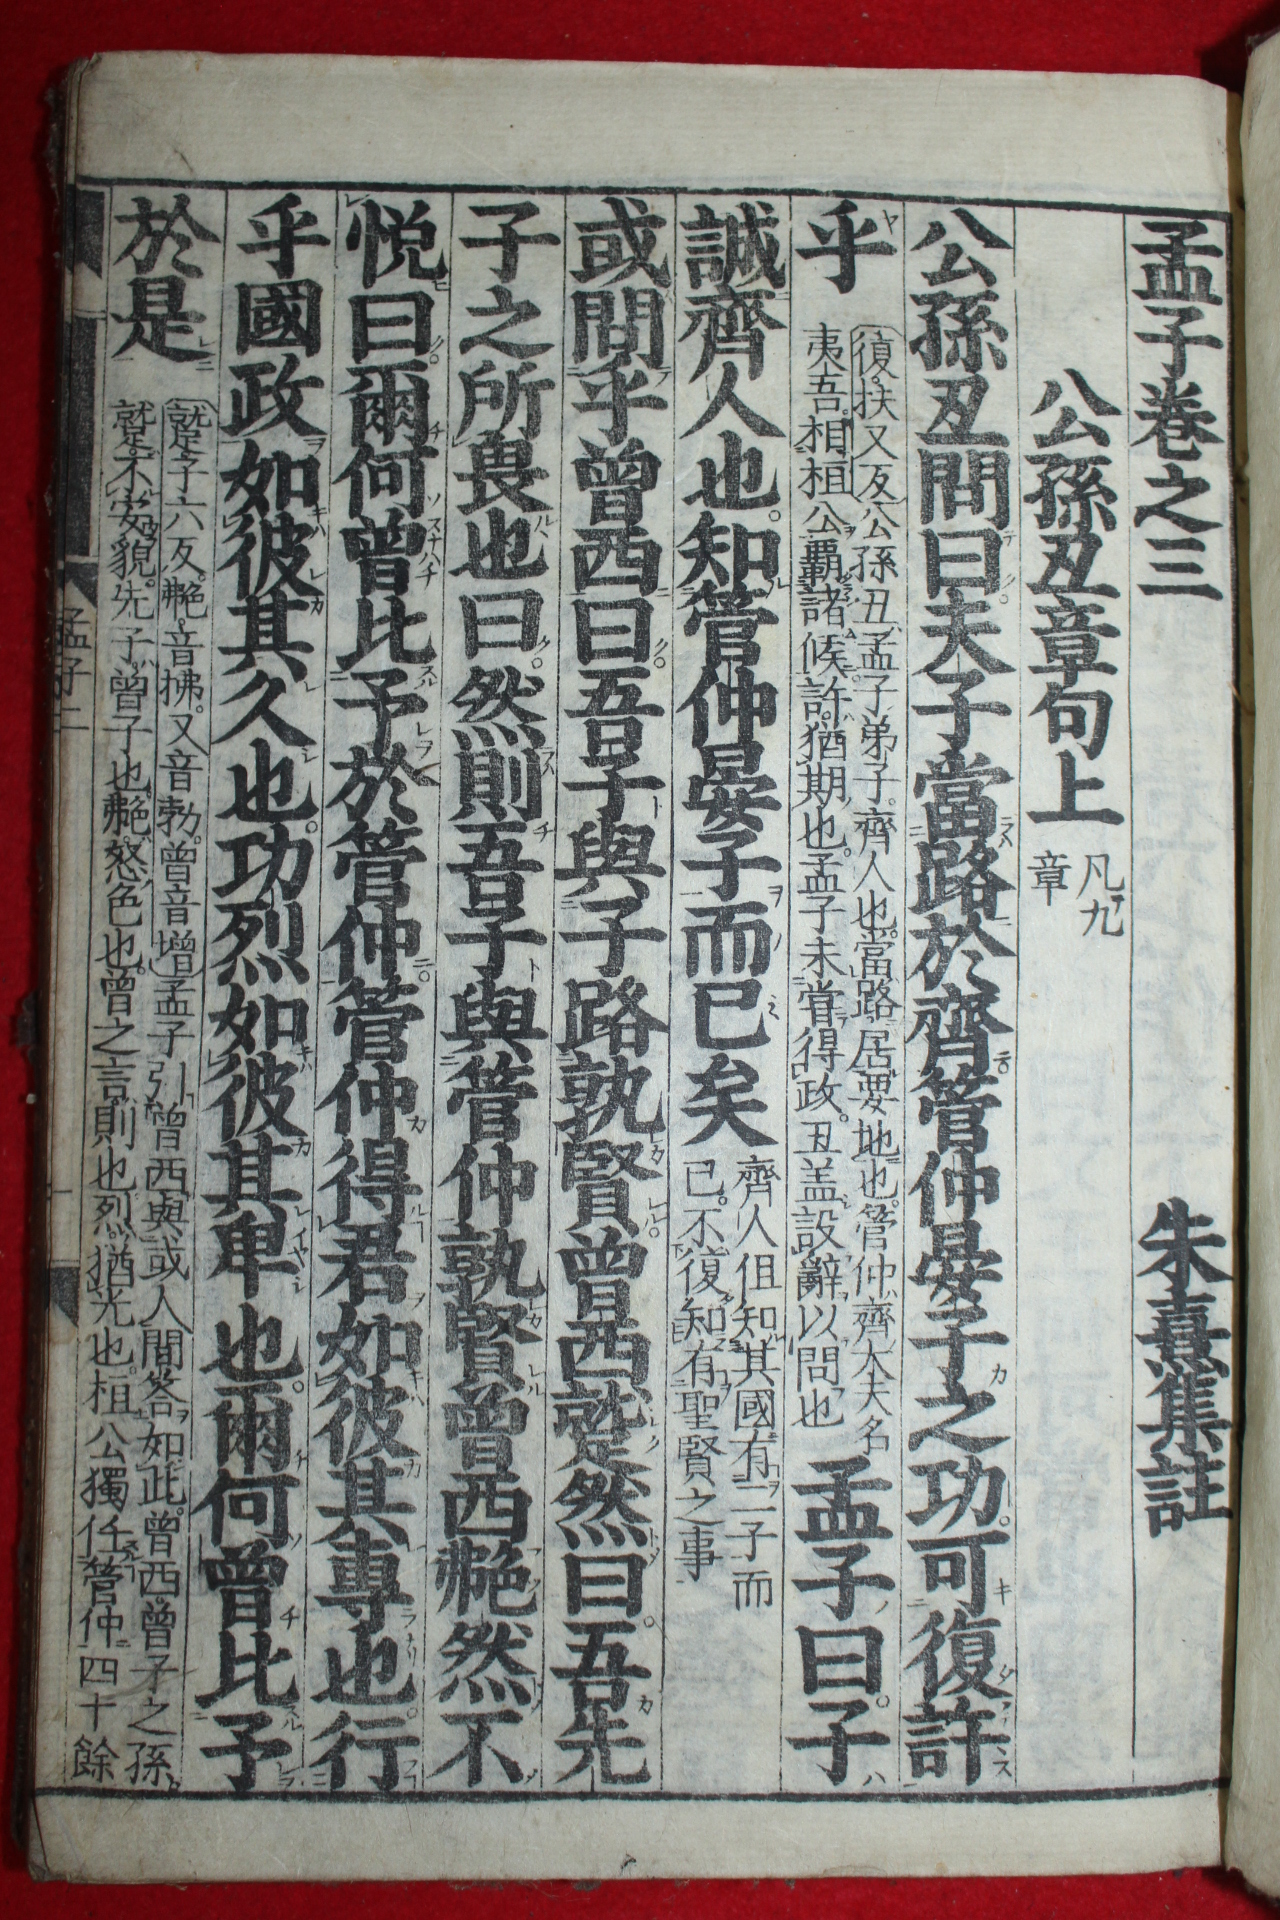 孟子卷之三
朱熹集註
公孫丑章句上
凡九
章
公孫丑問曰夫子當路於齊管仲晏子之功可復許
乎
復扶又反公孫丑孟子弟子齊人也當路居要地也管仲齊大夫名
夷吾相桓公霸諸侯許猶期也孟子未甞得政丑盖設辭以問也
孟子曰子
誠齊人也知管仲晏子而已矣
齊人但知其國有二子而
已不復知有聖賢之事
或問乎曾西曰吾子與子路孰賢曾西蹵然曰吾先
子之所畏也曰然則吾子與管仲孰賢曾西艴然不
悦曰爾何曾比予於管仲管仲得君如彼其專也行
乎國政如彼其久也功烈如彼其卑也爾何曾比予
於是
蹵子六反艴音拂又音勃曾音增孟子引曾西與或人問答如此曾西曾子之孫
蹵不安貌先子曾子也艴怒色也曾之言則也烈猶光也桓公獨任管仲四十餘
孟子二
一